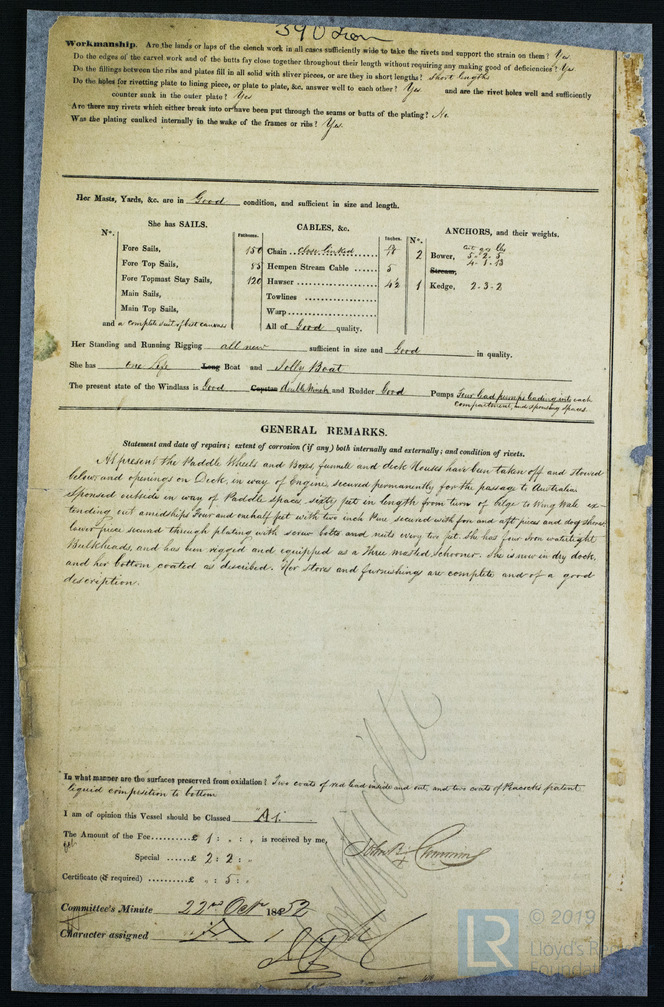 390 Iron
Workmanship. Are the lands or laps of the clench work in all cases sufficiently wide to take the rivets and support the strain on them? Yes
Do the edges of the carvel work and of the butts fay close together throughout their length without requiring any making good of deficiencies? Yes
Do the fillings between the ribs and plates fill in all solid with sliver pieces, or are they in short lengths? Short lengths
Do the holes for rivetting plate to lining piece, or plate to plate, &c. answer well to each other? Yes and are the rivet holes well and sufficiently
counter sunk in the outer plate? Yes
Are there any rivets which either break into or have been put through the seams or butts of the plating? No
Was the plating caulked internally in the wake of the frames or ribs? Yes
Her Masts, Yards, &c. are in Good condition, and sufficient in size and length.
She has SAILS. CABLES, &c. ANCHORS, and their weights.
N°. Fathoms. Inches. N°.
cwt qrs lbs
Fore Sails, 150 Chain .. close linked 2 Bower, 5-2-5
Fore Top Sails, 85 Hempen Stream Cable ...... 5 Stream, 4-1-13
Fore Topmast Stay Sails, 120 Hawser ................ 4½ 1 Kedge, 2-3-2
Main Sails, Towlines ................
Main Top Sails, Warp ................
and a complete suit of best canvass All of Good quality.
Her Standing and Running Rigging all new sufficient in size and Good in quality.
She has one Life Long Boat and Jolly Boat
The present state of the Windlass is Good Capstan double Winch and Rudder Good Pumps Four lead pumps leading into each
compartment, and sponsing spaces.
GENERAL REMARKS.
Statement and date of repairs; extent of corrosion (if any) both internally and externally; and condition of rivets.
At present the Paddle Wheels and Boxes, funnele and deck Houses have been taken off and stowed
below, and openings on Deck, in way of Engine, secured permanently for the passage to Australia
Sponsed outside in way of Paddle spaces, sixty feet in length from turn of bilge to Wing Wale ex-
tending out amidships Four and one half feet with two inch Pine secured with fore and aft pieces and dog shores
lower piece secured through plating with screw bolts and nuts every two feet. She has four Iron watertight
Bulkheads, and has been rigged and equipped as a Three masted Schooner. She is now in dry dock,
and her bottom coated as described. Her stores and furnishings are complete and of a good
description.
In what manner are the surfaces preserved from oxidation? Two coats of red lead inside and out, and two coats of Peacocks patent
liquid composition to bottom
I am of opinion this Vessel should be Classed "A1"
The Amount of the Fee..........£ 1 : " : " is received by me,
Special ......£ 2 : 2 : "
Certificate (if required) ....£ " : 5 : "
Committee's Minute 22nd Octr 1852
Character assigned A 1
© 2019
LR
Lloyd's Re
Foundation